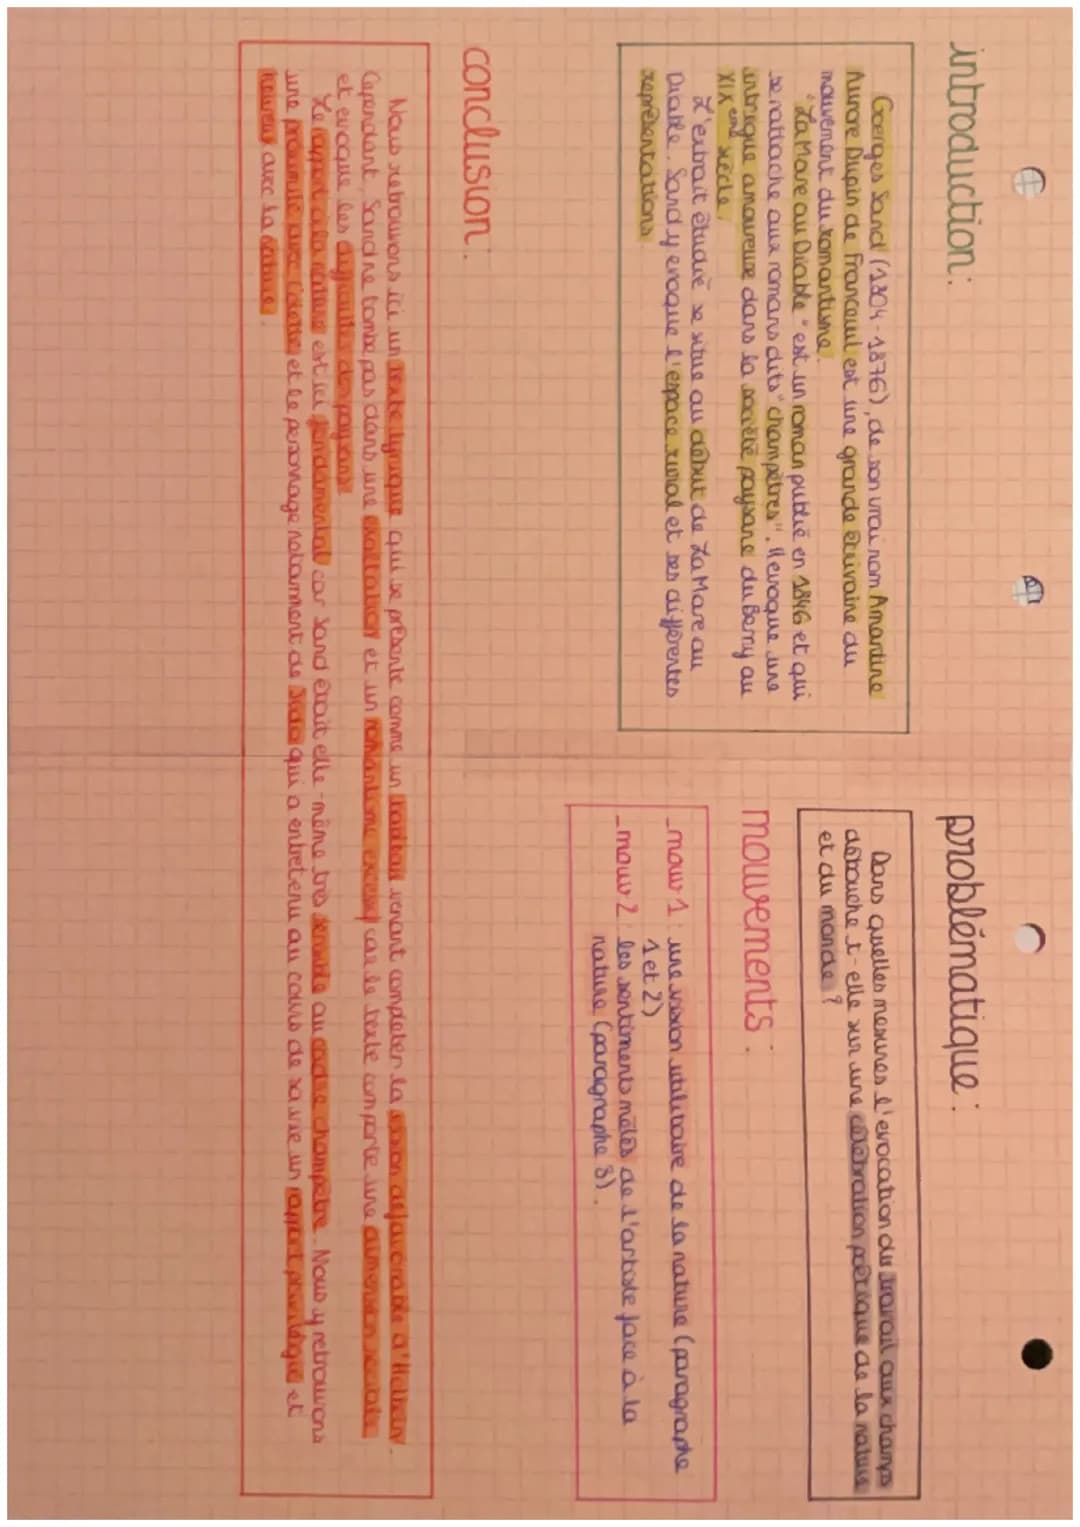 introduction:
Goerges Sand (1804-1876), de son vrai nom Amantine
Aurore Dupin de Franceuil est une grande écrivaine du
mouvement du romantisme.
"La Mare au Diable" est un roman publié en 1846 et qui
se rattache aux romans dits "champêtres". Il evoque une
intrigue amoureuse dans la société paysane du Berry au
XIX eme siècle.
L'extrait étudié se situe au début de La Mare au
Diable. Sand y evoque l'espace rural et ses différentes
représentations.
problématique:
Dans quelles mesures l'evocation du travail aux champs
débouche t-elle sur une célébration poétique de la nature
et du monde ?
mouvements:
_mouv 1: une vision utilitaire de la nature (paragraphe
1 et 2)
_mouv 2: les sentiments mêlés de l'artiste face à la
nature (paragraphe 3).
conclusion:
Nous retrouvons ici un texte lyrique qui se présente comme un venant completer la vision d'Holbein.
Cependant, Sand ne tombe pas dans une exaltation et un romantisme excessif car le texte comporte une dimension sociale
et evoque les difficultés des paysans.
Le rapport à la nature est ici fondamental car Sand etait elle-même très sensible au cadre champêtre. Nous y retrouvons
une proximité avec Colette et le personnage notamment de Sido qui a entretenu au cours de sa vie un rapport privilégié et
heureux avec la nature.